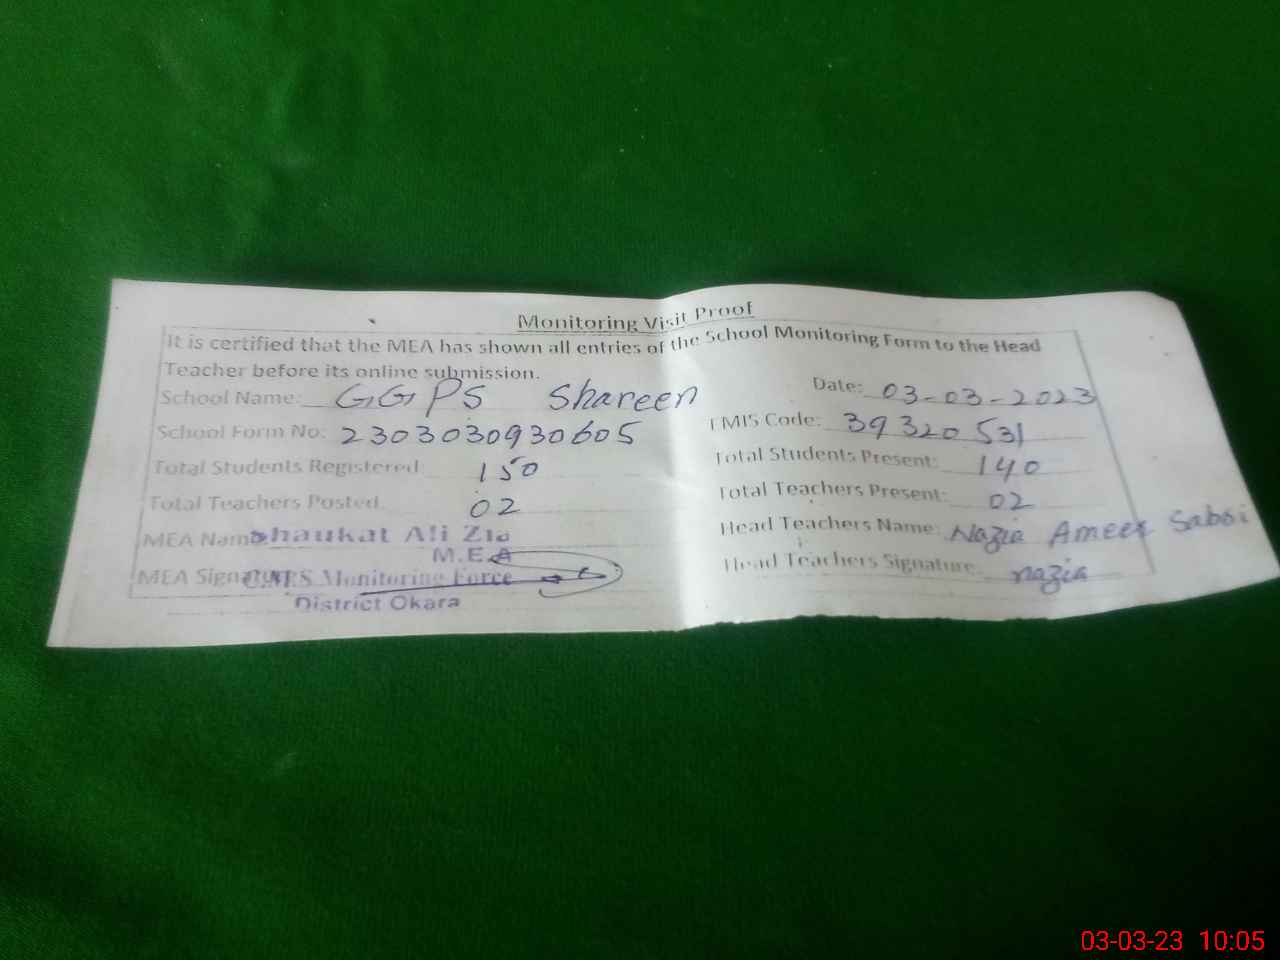 Monitoring Visit Proof
It is certified that the MEA has shown all entries of the School Monitoring Form to the Head
Teacher before its online submission.
School Name: GGPS Shareen Date: 03-03-2023
School Form No: 2303030930605 EMIS Code: 39320531
Total Students Registered 150 Total Students Present: 140
Total Teachers Posted 02 Total Teachers Present: 02
MEA Name Shaukat Ali Zia Head Teachers Name: Nazia Ameer
M.E.A
MEA Signature Monitoring Force Head Teachers Signature nazia
District Okara
03-03-23 10:05